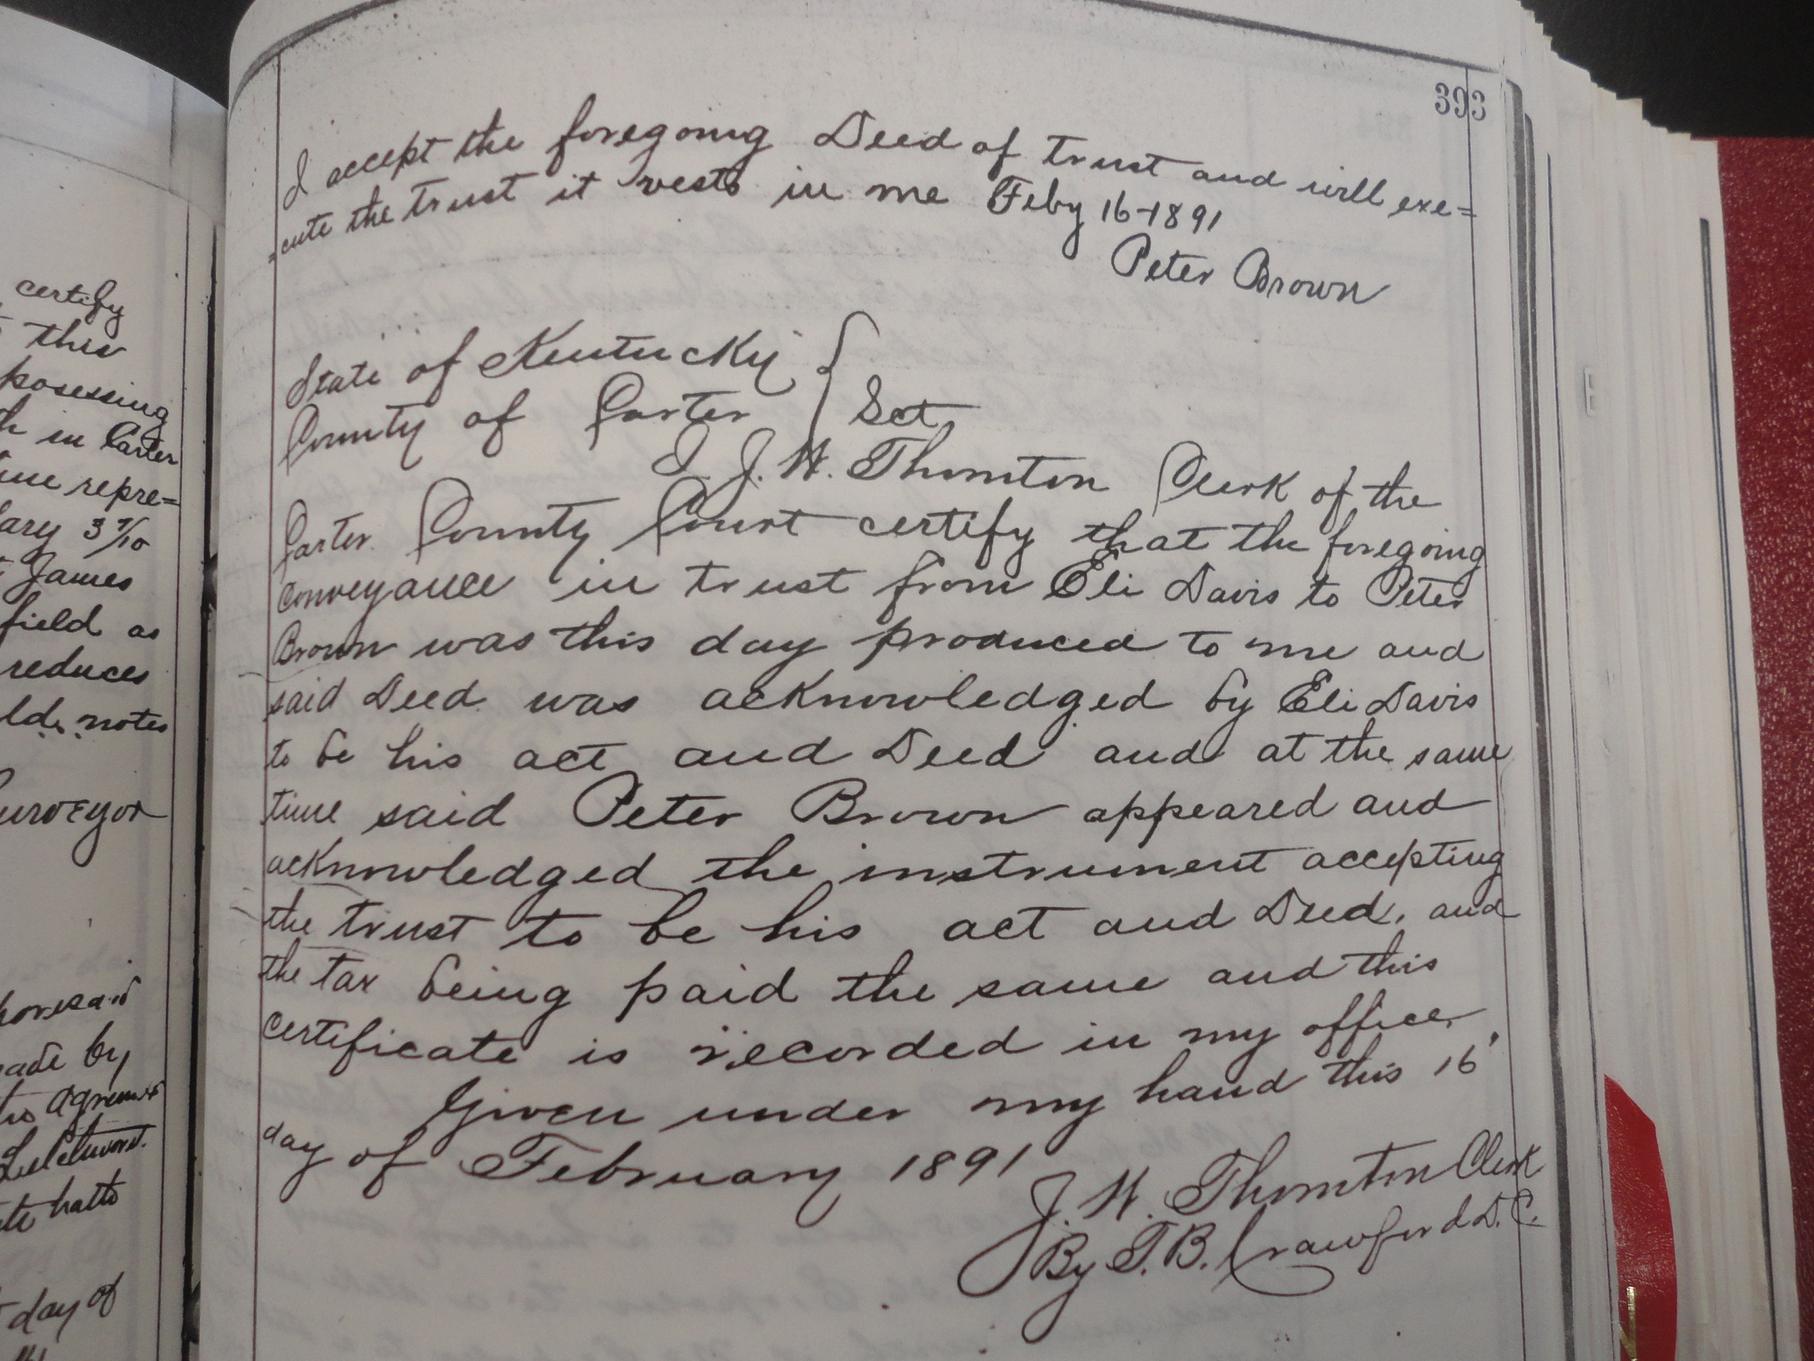 certify
this
possessing
in Carter
repre=
ary 3 7/10
James
field as
reduces
notes
urveyor
foresaid
ade by
agreem
day of
393
I accept the foregoing Deed of trust and will exe=
=cute the trust it vests in me Feby 16-1891
Peter Brown
State of Kentucky
County of Carter } Sct
I J. W. Thornton Clerk of the
Carter County Court certify that the foregoing
conveyance in trust from Eli Davis to Peter
Brown was this day produced to me and
said Deed was acknowledged by Eli Davis
to be his act and Deed and at the same
time said Peter Brown appeared and
acknowledged the instrument accepting
the trust to be his act and Deed, and
the tax being paid the same and this
certificate is recorded in my office,
Given under my hand this 16'
day of February 1891
J. W. Thornton Clerk
By T. B. Crawford D. C.